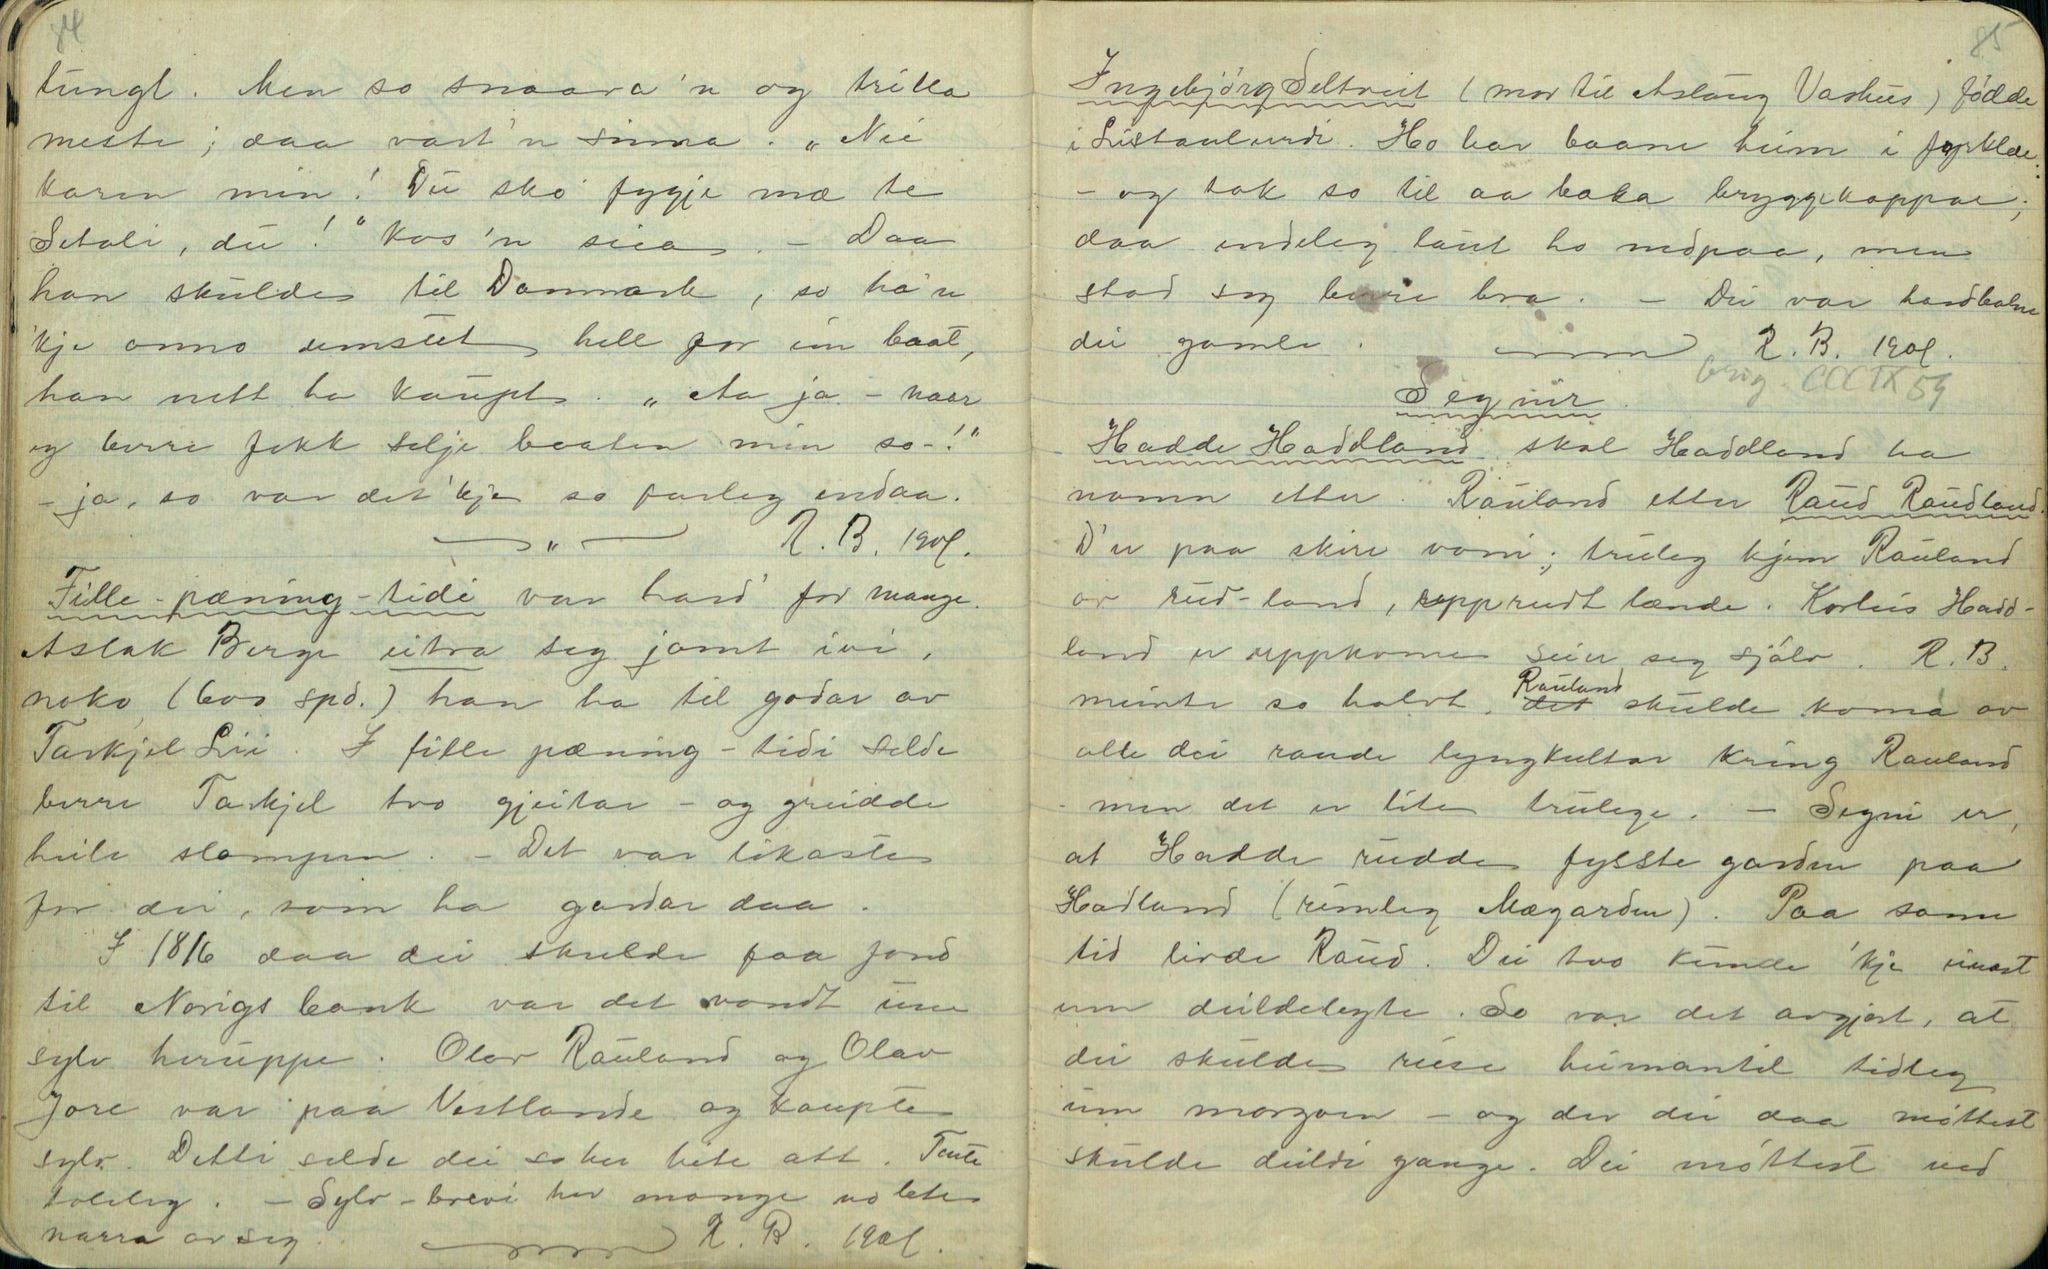 84
tungt. Men so snaara'n og trilla
meste; daa vart'n sinna. „Nei
karen min! Du sko fygje mæ te
Setali, du!“ kos'n sieia. – Daa
han skulde til Danmark, so ha'n
'kje anna umstut hell for ein baat,
han nett ha kaupt. „Aa ja – naar
eg berre fekk selje baaten min so –!“
– ja, so var det 'kje so farleg endaa.
— „ — R. B. 1901.
Fille-pæning-tidi var hard' for mange.
Aslak Berge eitra seg jamt ivi,
noko (600 spd.) han ha til godar av
Tarkjel Lii. I fille pæning-tidi selde
berre Tarkjel tvo gjeitar – og greidde
heile slompen. – Det var likaste
for dei, som ha gardar daa.
I 1816 daa dei skulde faa fond
til Norigs bank var det vondt um
sylv heruppe. Olav Rauland og Olav
Jore var paa Vestlande og kaupte
sylv. Detti selde dei so her heile att. Tente
toleleg. – Sylv-brevi her mange no lete
narra av seg. R. B. 1901.
85
Ingebjörg Seltveit (mor til Aslaug Vashus) födde
i Listaulurdi. Ho bar baane heim i fyrklde
– og tok so til aa baka bryggekappar;
daa endeleg laut ho nedpaa, men
stod seg berre bra. – Dei var hardbalne
dei gamle. R. B. 1901.
brig. CCCIX 54
Segnir.
Hadde Haddland skal Haddland ha
namn etter. Rauland etter Raud Raudland.
D'er paa skire vani; truleg kjem Rauland
av rud-land, upprudt lænde. Korleis Hadd-
land er uppkome seier seg sjölv. R. B.
meinte so halvt, det Rauland skulde koma av
alle dei raude lyngkultar kring Rauland
– men det er lite trulege. – Segni er,
at Hadde rudde fysste garden paa
Hadland (rimleg Mægarden). Paa same
tid livde Raud. Dei tvo kunde 'kje einast
um deildelegte. So var det avgjort, at
dei skulde reise heimantil tidleg
um morgoen – og der dei daa möttest
skulde deildi gange. Dei möttest ved